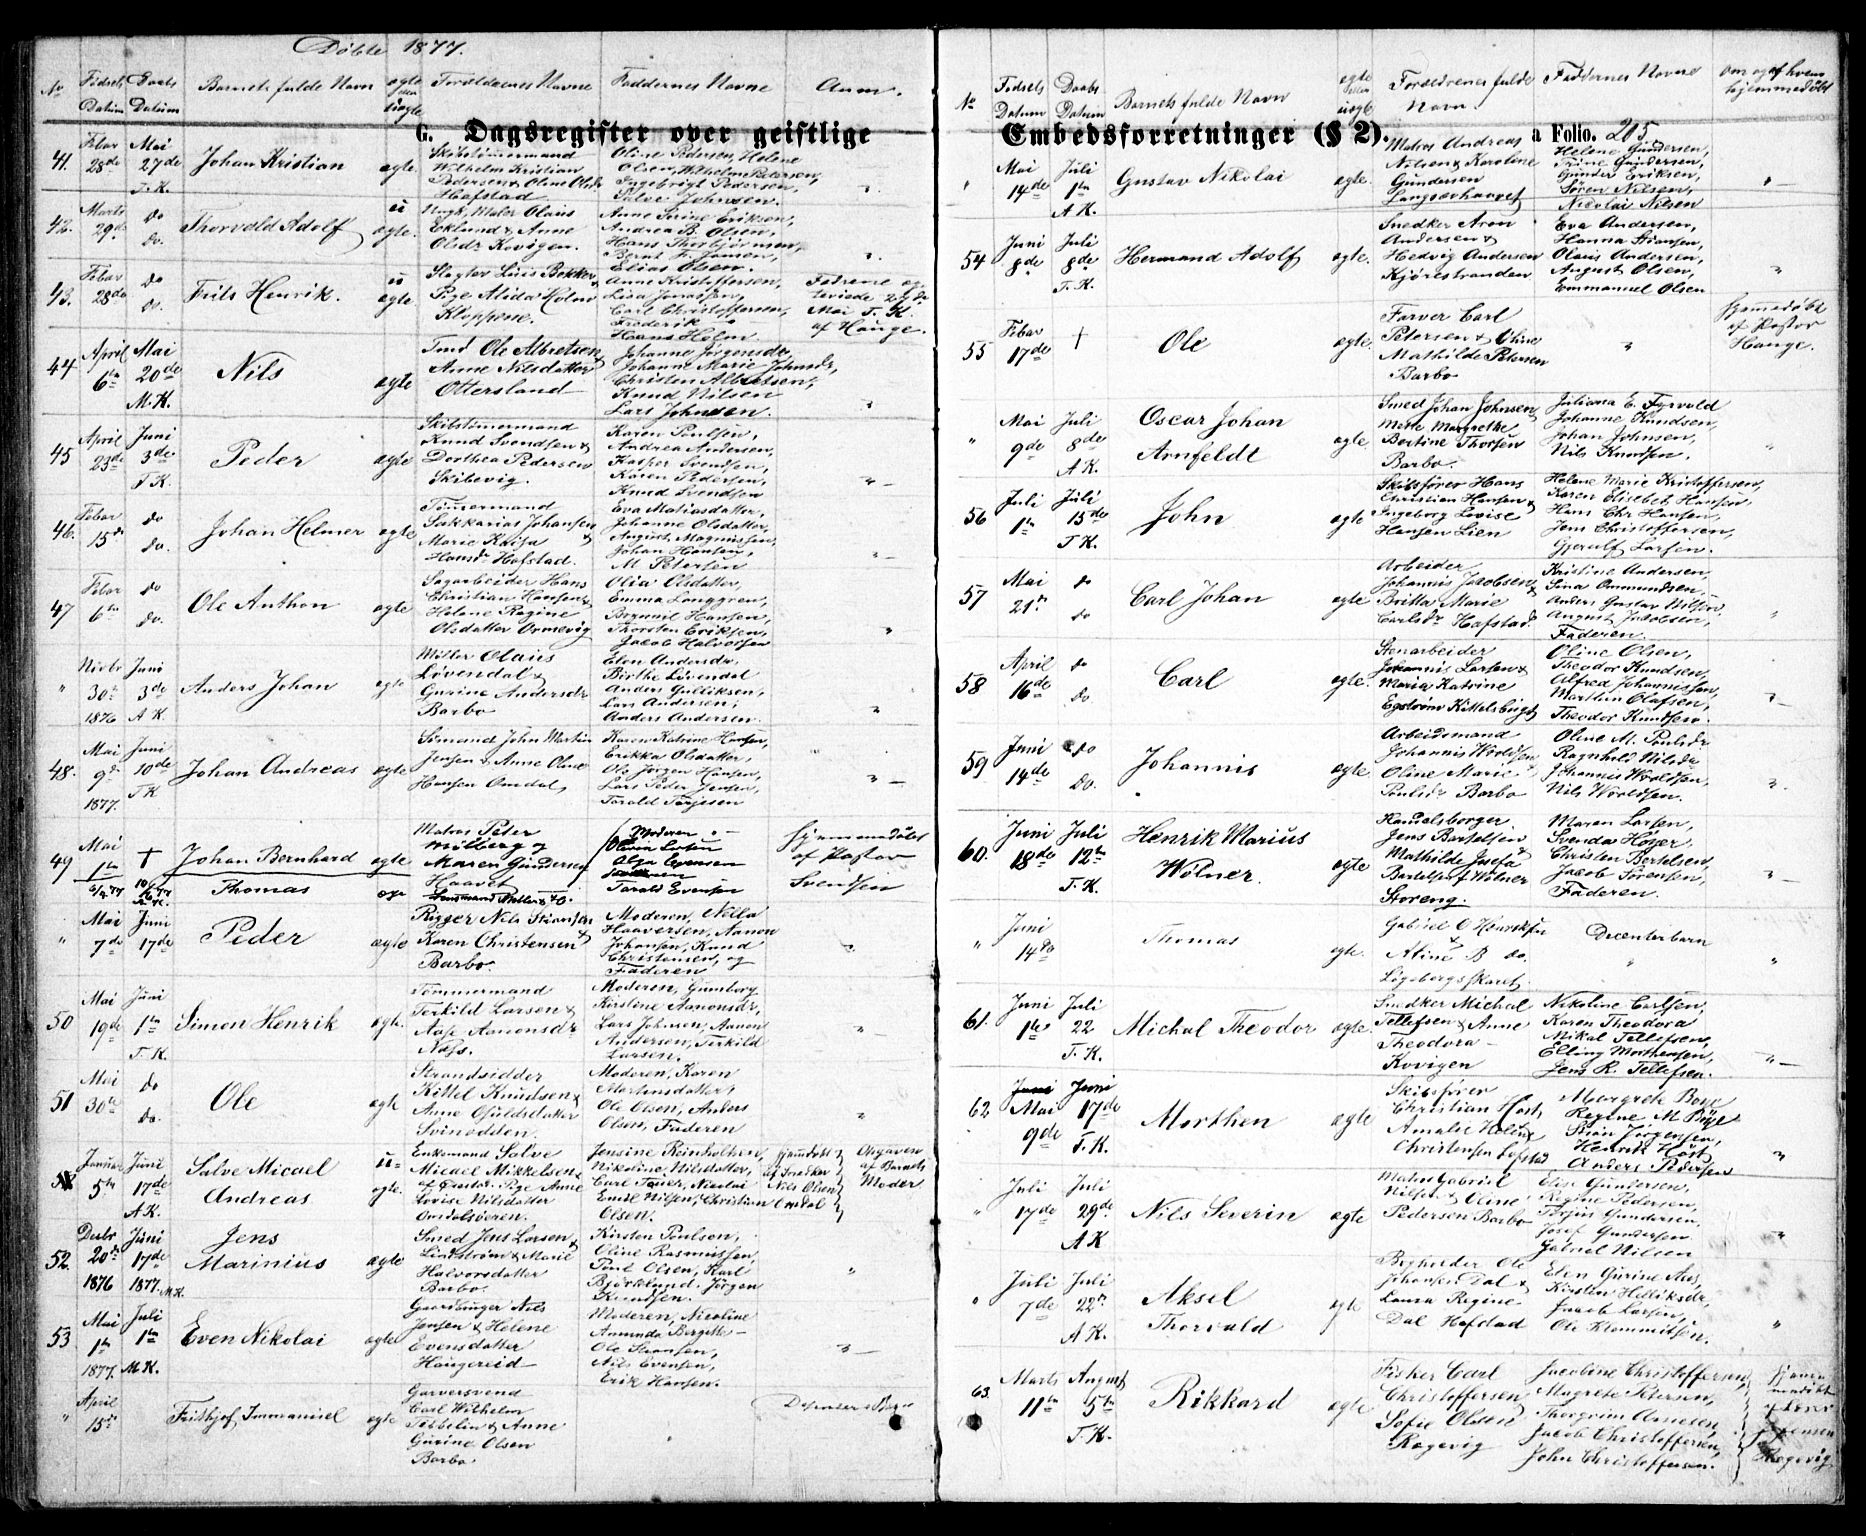 Döbte 1877.
No Födsels Datum Daabs Datum Barnets fulde Navn ægte eller uægte Forældrenes Navne Faddernes Navne Anm.
G. Dagsregister over geistlige
41. Febar 28de Mai 27de T. K. Johan Kristian ægte
Skibstömmermand
Wilhelm Kristian
Pedersen & Oline Olsdr
Hofstad
Oline Pedersen, Helene
Olsen, Wilhelm Petersen,
Ingebrigt Pedersen,
Salve Johnsen.
42. Marts 29de do do. Thorvald Adolf u ægte.
Ungk. Maler Olaus
Eklund & Anne
Olsdr Kovigen.
Anne Serine Eriksen,
Andrea B. Olsen,
Hans Thorbjörnsen,
Bernt F. Jansen,
Elias Olsen.
43. Febar 28de do do. Frits Henrik. u ægte
Slagter Luis Bekker &
Pige Alida Holm
Kloppene.
Anne Kristoffersen,
Lisa Jonassen,
Carl Christoffersen,
Frederik
Hans Holm
Mai T. K.
af Hauge.
44 April 6te Mai 20de M. K. Nils ægte
Tind Ole Albretsen &
Anne Nilsdatter
Ottersland
Johanne Jörgensdr,
Johanne Marie Johnsdr,
Christen Albretsen,
Knud Nilsen
Lars Johnsen.
45 April 23de Juni 3de T K. Peder ægte
Skibstömermand
Knud Svendsen &
Dorthea Pedersen
Skibevig.
Karen Poulsen,
Andrea Andersen,
Kasper Svendsen,
Karen Pedersen,
Knud Svendsen
46. Febar 15de do do. Johan Helmer ægte
Tömermand
Sakkarias Johansen &
Marie Kaisa
Hansdr Hofstad.
Eva Matiasdatter,
Johanne Olsdatter,
August Magnussen,
Johan Hansen,
M Petersen
47 Febar 6te do do. Ole Anthon ægte
Sagarbeider Hans
Christian Hansen &
Helene Regine
Olsdatter Ormevig
Olia Olsdatter,
Emma Langgren,
Thorsten Eriksen,
Jacob Halvorsen
" Novbr 30te 1876 Juni 3de A K. Anders Johan ægte
Möller Olaus
Lövendal &
Gurine Andersdr
Barbo
Elen Andersdr,
Birthe Lövendal
Anders Gulliksen,
Lars Andersen,
Anders Andersen.
48. Mai 9de 1877. Juni 10de T K. Johan Andreas ægte
Sömand John Martin
Jensen & Anne Oline
Hansen Omdal,
Karen Katrine Hansen,
Erikka Olsdatter,
Ole Jörgen Hansen,
Lars Peder Jensen,
Tarald Terjesen
49 Mai 1te † Johan Bernhard ægte
Matros Peter
Mölberg &
Maren Gundersen
Haavet
Hjemmedöbt
af Pastor
Svendsen
Thomas
Moderen
Olga Evensen
Tarald Evensen
" Mai 7de Juni 17de Peder ægte
Rigger Nils Stiansen &
Karen Christensen
Barbo.
Moderen, Nella
Haaversen, Aanon
Johansen, Knud
Christensen, og
Faderen
50 Mai 19de Juni 1te T. K. Simon Henrik ægte.
Tömmermand
Terkild Larsen &
Aase Aanonsdr
Næss.
Moderen, Gunborg
Kirstine Aanonsdr,
Lars Johnsen, Aanon
Andersen, Terkild
Larsen.
51 Mai 30te do do. Ole ægte
Strandsidder
Kittel Knudsen &
Anne Osuldsdatter
Svinodden.
Moderen, Karen
Mortensdatter,
Ole Olsen, Anders
Olsen, Faderen
Januar 5te Juni 17de A K. Salve Micael Andreas u= ægte.
Enkemand Salve
Micael Mikkelsen &
Pige Anne
Lovise Nilsdatter
Omdalsöeren.
Jensine Reinholtsen,
Nikoline Nilsdatter,
Carl Tauer, Nicolai
Emil Nilsen, Christian
Olsen.
Hjemdöbt
af Snedker
Nils Olsen
Omdal
Opgaven
af Barnets
Moder.
52. Decbr 20de 1876 Juni 17de 1877. M K. Jens Marinius ægte
Smed Jens Larsen
Lindström & Marie
Halvorsdatter
Barbo.
Kirsten Poulson,
Oline Rasmussen,
Poul Olsen, Karl
Björklund, Jörgen
Knudsen.
53 Mai 1te 1877. Juli 1te M K. Even Nikolai ægte
Gaardbruger Nils
Jensen & Helene
Evensdatter
Haugereid
Moderen, Nicoline
Amunda Bergitte
Ole Hansen,
Nils Evensen,
Erik Hansen.
" April 15de Fridtjof Immanuel ægte
Garversvend
Carl Wilhelm
Tebbelin & Anne
Gurine Olsen
Barbo
No Födsels Datum Daabs Datum Barnets fulde Navn ægte eller uægte Forældrenes fulde Navn. Faddernes Navne Om og af hvem hjemmedöbt
Embedsforretninger (§ 2). a Folio. 205
Mai 14de Juli 1te A K. Gustav Nikolai ægte.
Matros Andreas
Nilsen & Karoline
Gundersen
Langsævhauvet
Helene Gundersen,
Trine Gundersen,
Gunder Eriksen,
Sören Nilsen,
Nicolai Nilsen
54 Juni 8de Juli 8de T. K. Hermand Adolf ægte.
Snedker Aron
Andersen &
Hedvig Andersen
Kjörestranden
Eva Andersen,
Hanna Stiansen,
Olaus Andersen,
August Olsen,
Emmanuel Olsen
55 Febar 17de † Ole ægte.
Farver Carl
Petersen & Oline
Mathilde Petersen
Barbo
Hjemedöbt
af Pastor
Hauge.
" Mai 9de Juli 8de A K. Oscar Johan Arnfeldt ægte
Smed Johan Johnsen &
Mette Margrethe
Bertine Thorsen
Barbo.
Juliana E. Fyrvald
Johanne Knudsen,
Johan Johnsen,
Nils Knudsen.
56 Juli 1te Juli 15de T K. John ægte
Skibsförer Hans
Christian Hansen &
Ingeborg Lovise
Hansen Lien
Helene Marie Kristoffersen,
Karen Elisebet Hansen,
Hans Chr Hansen,
Jens Christoffersen,
Gjerulf Larsen.
57 Mai 21te do do Carl Johan ægte
Arbeider
Johannis Jacobsen &
Britta Marie
Carlsdr Hofstad.
Kristine Andersen,
Sina Ommundsen,
Anders Gustav Nilsen,
August Jacobsen,
Faderen.
58 April 16de do do. Carl ægte.
Stenarbeider
Johannis Larsen &
Maria Katrine
Egström Kittelsbugt
Oline Olsen,
Theodor Knudsen,
Alfred Johannissen,
Marthin Olafsen,
Theodor Knudsen.
59 Juni 14de do do. Johannis ægte.
Arbeidsmand
Johannis Woldsen &
Oline Marie
Poulsdr Barbo
Oline M. Poulsdr
Ragnhild Nilsdr
Johannis Woldsen,
Nils Woldsen.
60. Juni 18de Juli 12te T. K. Henrik Marius Wölner. ægte
Handelsborger
Jens Bertelsen &
Mathilde Josefa
Bertelsen f. Wölner
Storeng.
Maren Larsen,
Svenda Höyer,
Christen Bertelsen,
Jacob Sörensen,
Faderen.
" Juni 14de Thomas ægte.
Gabriel O Henriksen
&
Aline B do.
Lögebergsskaret.
Decenterbarn
61. Juni 1te Juli 22 T. K. Michal Theodor ægte.
Snedker Michal
Tellefsen & Anne
Theodora
Kovigen
Nikoline Carlsen,
Karen Theodora
Mikal Tellefsen,
Elling Mortensen,
Jens R. Tellefsen.
62 Juni Mai 9de Juni 17de T. K. Morthen ægte
Skibsförer
Christian Höst &
Amalie Helene
Christensen Lofstad
Margrete Boye
Regine M Böge
Stian Jörgensen,
Henrik Höst
Anders Pedersen
" Juli 17de Juli 29de A K Nils Severin ægte
Matros Gabriel
Nilsen & Oline
Pedersen Barbo
Elise Gundersen,
Regine Pedersen,
Torjus Gundersen,
Josef Gundersen
Gabriel Nilsen
" Juli 7de Juli 22de A K. Aksel Thorvald ægte
Bogholder Ole
Johansen Dal &
Laura Regine
Dal Hofstad
Elen Gurine Aas,
Kirsten Helliksdr,
Jacob Larsen,
Ole Klemmitsen.
63. Marts 11te August 5te T. K. Rikkard ægte
Fisker Carl
Christoffersen,
Sofie Olsen
Ragevig
Jacobine Christoffersen,
Magrete Petersen,
Thorgrim Arnesen,
Jacob Christoffersen,
John Christoffersen.
Hjem-
medöbt
Ragevig